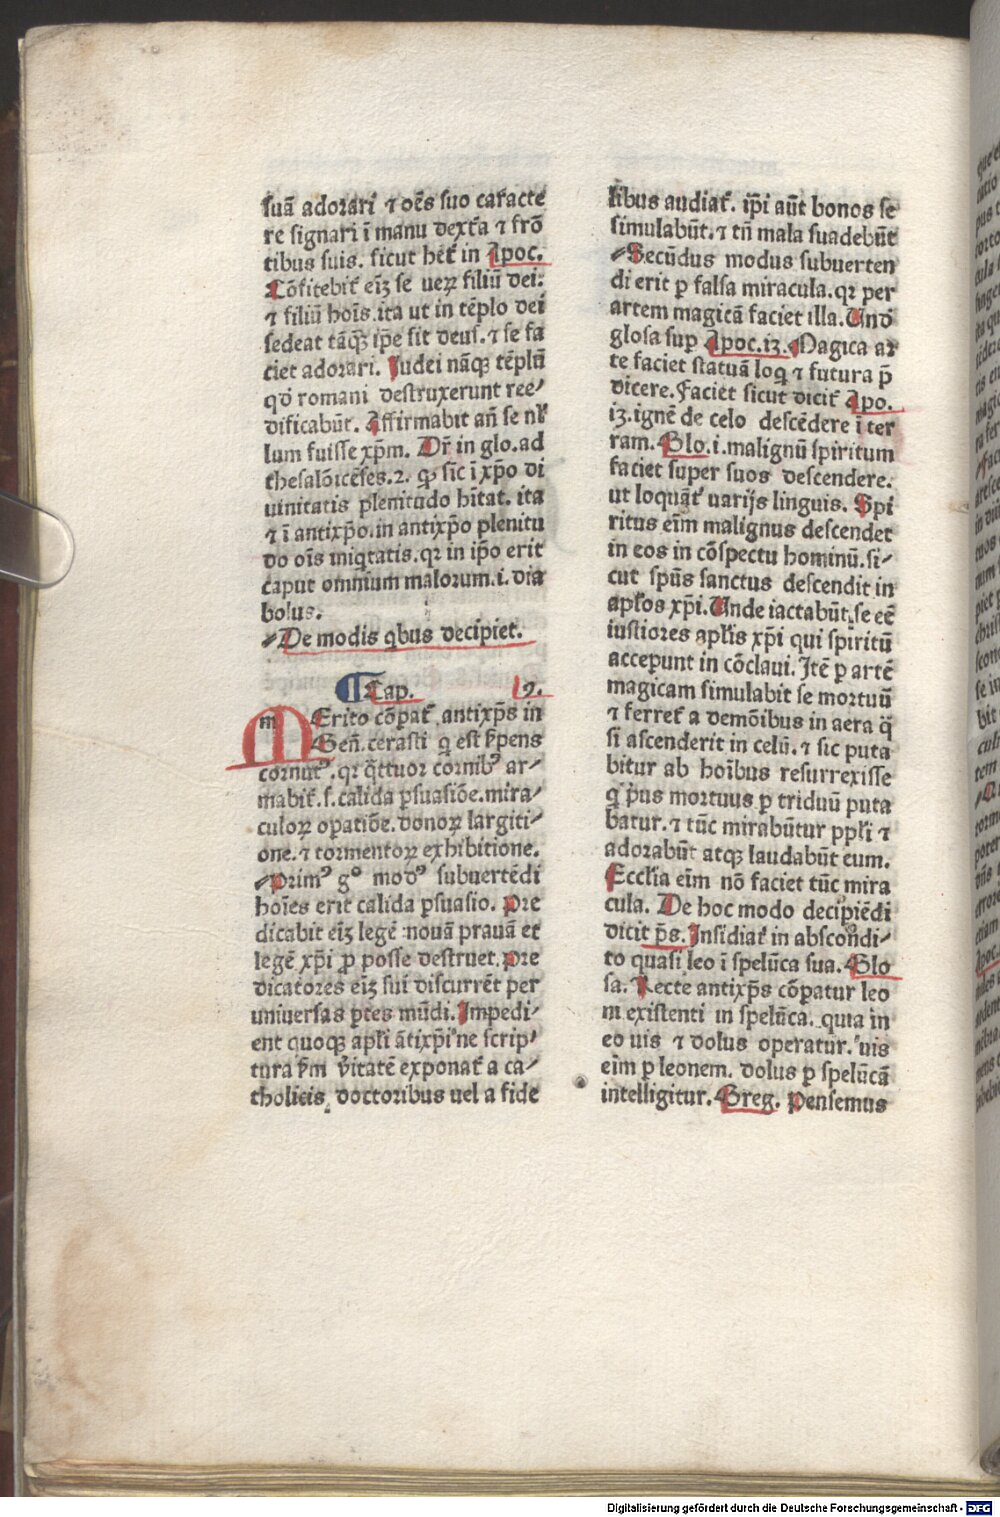 suā adorari ⁊ oēs suo caracte
re signari ī manu dext̄a ⁊ frō
tibus suis. sicut het̄ in Apoc.
Cōfitebit̄ eīꝫ se ueꝝ filiū dei:
⁊ filiū hoīs. ita ut in tēplo dei
sedeat tāqꝫ ip̄e sit deus. ⁊ se fa
ciet adorari. Judei nāqꝫ tēplū
qđ romani destruxerunt ree⸗
dificabūt. Affirmabit añ se nl̄
lum fuisse xp̄m. Dr̄ in glo. ad
thesalōicēses. 2. ꝙ sic̄ ī xp̄o di
uinitatis plenitudo hītat. ita
⁊ ī antixp̄o. in antixp̄o plenitu
do oīs iniq̄tatis. qꝛ in ip̄o erit
caput omnium malorum. i. dia
bolus.
De modis qbus decipiet.
¶ Cap. 19.
MErito cōpat̄ antixp̄s in
Geñ. cerasti q est s̄pens
cornutꝰ. qꝛ q̄ttuor cornibꝰ ar⸗
mabit̄. s. calida ꝑsuasiōe. mira⸗
culoꝝ oꝑatiōe. donoꝝ largiti⸗
one. ⁊ tormentoꝝ exhibitione.
Primꝰ gº modꝰ subuertēdi
hoīes erit calida ꝑsuasio. Pre
dicabit eīꝫ legē nouā prauā et
legē xp̄i ꝓ posse destruet. Pre
dicatores eīꝫ sui discurrēt per
uniuersas ꝑtes mūdi. Impedi⸗
ent quoqꝫ apl̄i ātixp̄i ne scrip⸗
tura s̄m v̄itatē exponat̄ a ca⸗
tholicis doctoribus uel a fide
libus audiat̄. ip̄i aūt bonos se
simulabūt. ⁊ tñ mala suadebūt
Secūdus modus subuerten
di erit ꝑ falsa miracula. qꝛ per
artem magicā faciet illa. Unđ
glosa sup Apoc. 13. Magica ar
te faciet statuā loq ⁊ futura p̄
dicere. Faciet sicut dicit̄ Apo.
13. ignē de celo descēdere ī ter
ram. Glo. i. malignū spiritum
faciet super suos descendere.
ut loquāt̄ uarijs linguis. Spi
ritus eīm malignus descendet
in eos in cōspectu hominū. si⸗
cut sp̄us sanctus descendit in
apl̄os xp̄i. Unde iactabūt se eē
iustiores apl̄is xp̄i qui spiritū
acceperunt in cōclaui. Itē ꝑ artē
magicam simulabit se mortuū
⁊ ferret̄ a demōibus in aera q̄
si ascenderit in celū. ⁊ sic puta
bitur ab hoībus resurrexisse
q pus mortuus ꝑ triduū puta
batur. ⁊ tūc mirabūtur ppl̄i ⁊
adorabūt atqꝫ laudabūt eum.
Eccl̄ia eīm nō faciet tūc mira
cula. De hoc modo decipiēdi
dicit p̄s. Insidiat̄ in abscondi⸗
to quasi leo ī spelūca sua. Glo
sa. Recte antixp̄s cōpatur leo
ni existenti in spelūca. quia in
eo uis ⁊ dolus operatur. uis
eīm ꝑ leonem. dolus ꝑ spelūcā
intelligitur. Greg. Pensemus
Digitalisierung gefördert durch die Deutsche Forschungsgemeinschaft - DFG